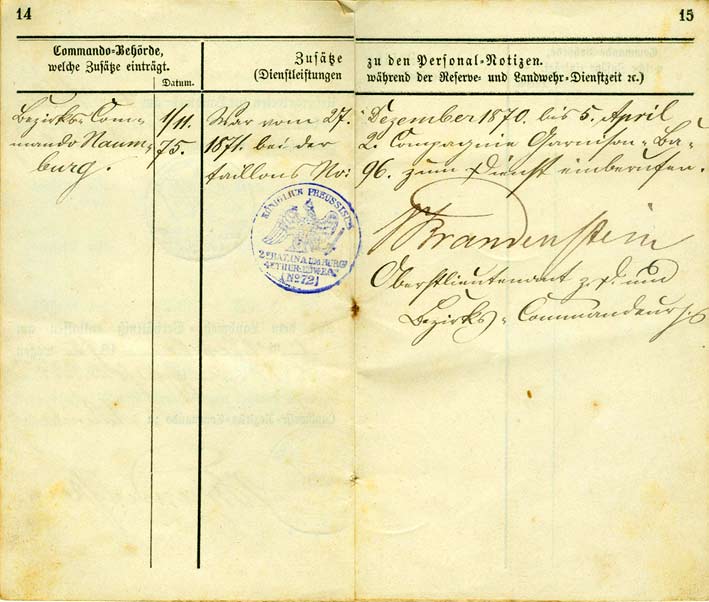 14
15
Commando-Behörde,
welche Zusätze einträgt.
Datum.
Zusätze
(Dienstleistungen
zu den Personal-Notizen.
während der Reserve- und Landwehr-Dienstzeit ꝛc.)
Bezirks-Com-
mando Naum-
burg.
1/11.
75.
War vom 27. Dezember 1870. bis 5. April
1871. bei der 2. Compagnie Garnison-Ba-
taillons No: 96. zum Dienst einberufen.
v. Brandenstein
Oberstlieutenant z. D. und
Bezirks-Commandeur
KÖNIGL. PREUSSISCH
2s BAT. (NAUMBURG)
4s THÜR. LDW. R.
(No 72)